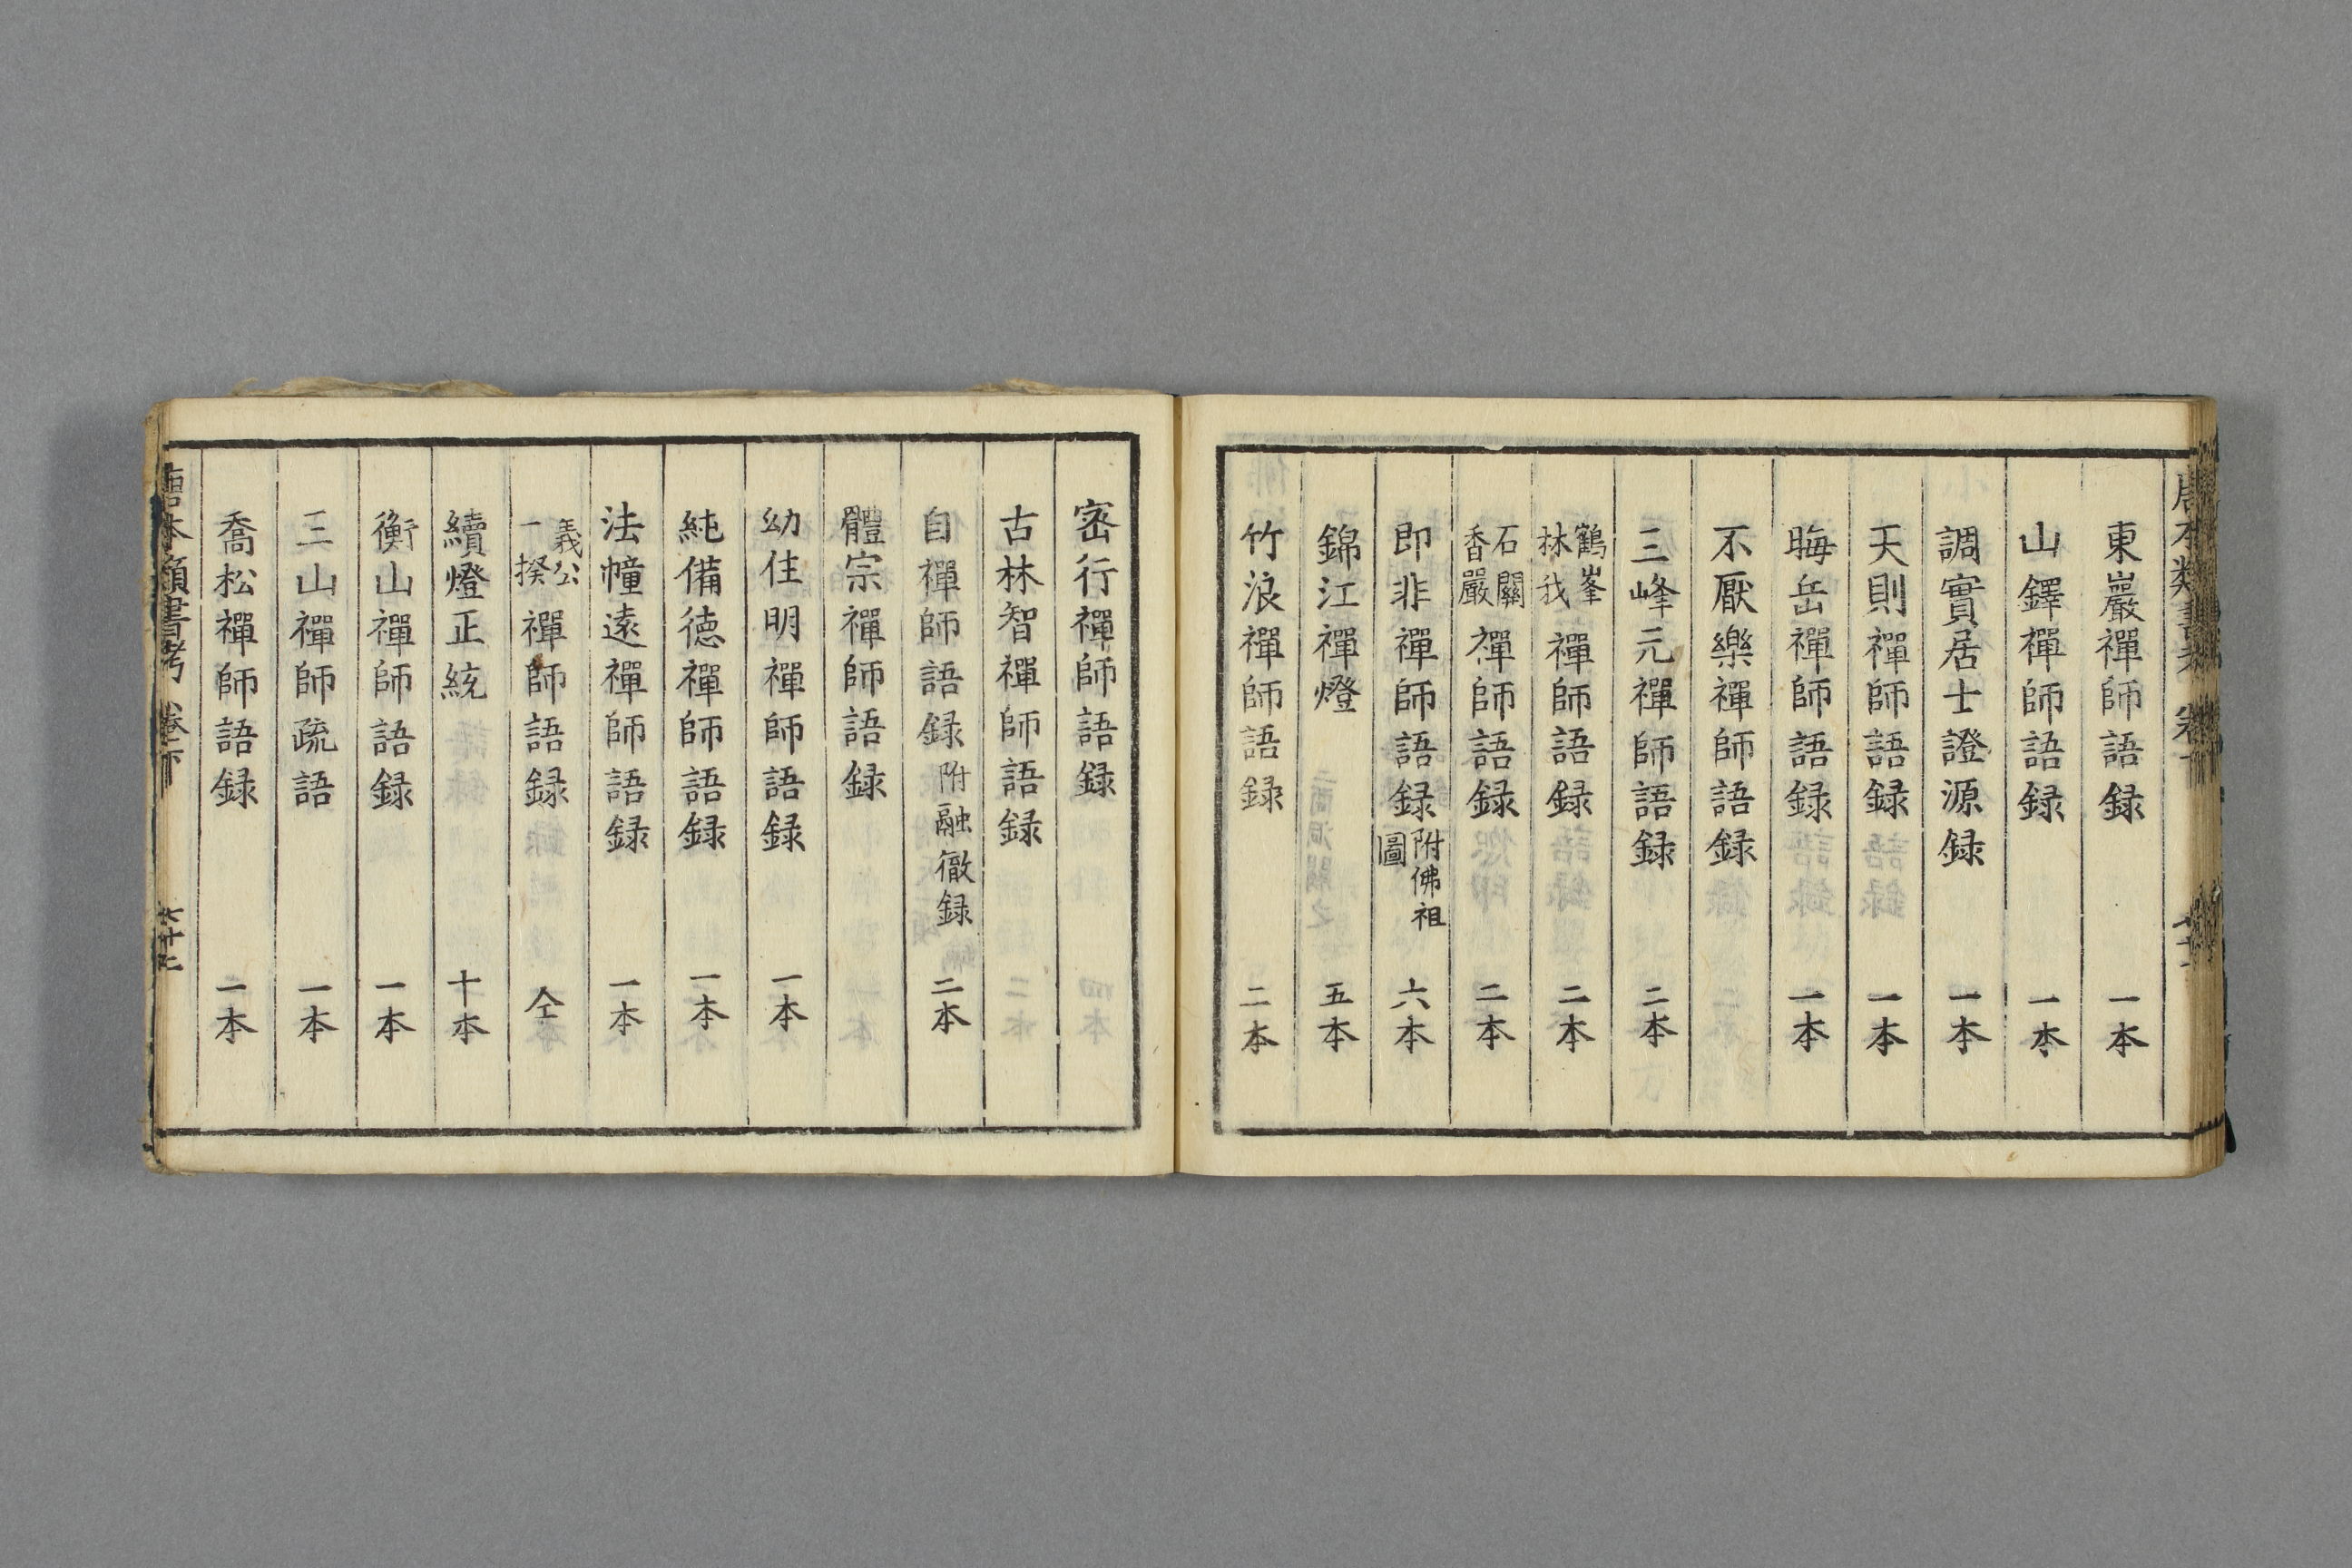 東巖禪師語録 一本
山鐸禪師語録 一本
調實居士證源録 一本
天則禪師語録 一本
晦岳禪師語録 一本
不厭樂禪師語録
三峰元禪師語録 二本
鶴峯林我禪師語録 二本
石關香嚴禪師語録 二本
即非禪師語録附佛祖圖 六本
錦江禪燈 五本
竹浪禪師語録 二本
宻行禪師語録
古林智禪師語録
自禪師語録附融徹録 二本
體宗禪師語録
幼住明禪師語録 一本
純備德禪師語録 一本
法幢遠禪師語録 一本
義公一揆禪師語録 仝
續燈正統 十本
衡山禪師語録 一本
三山禪師疏語 一本
喬松禪師語録 二本
唐本類書考 卷下